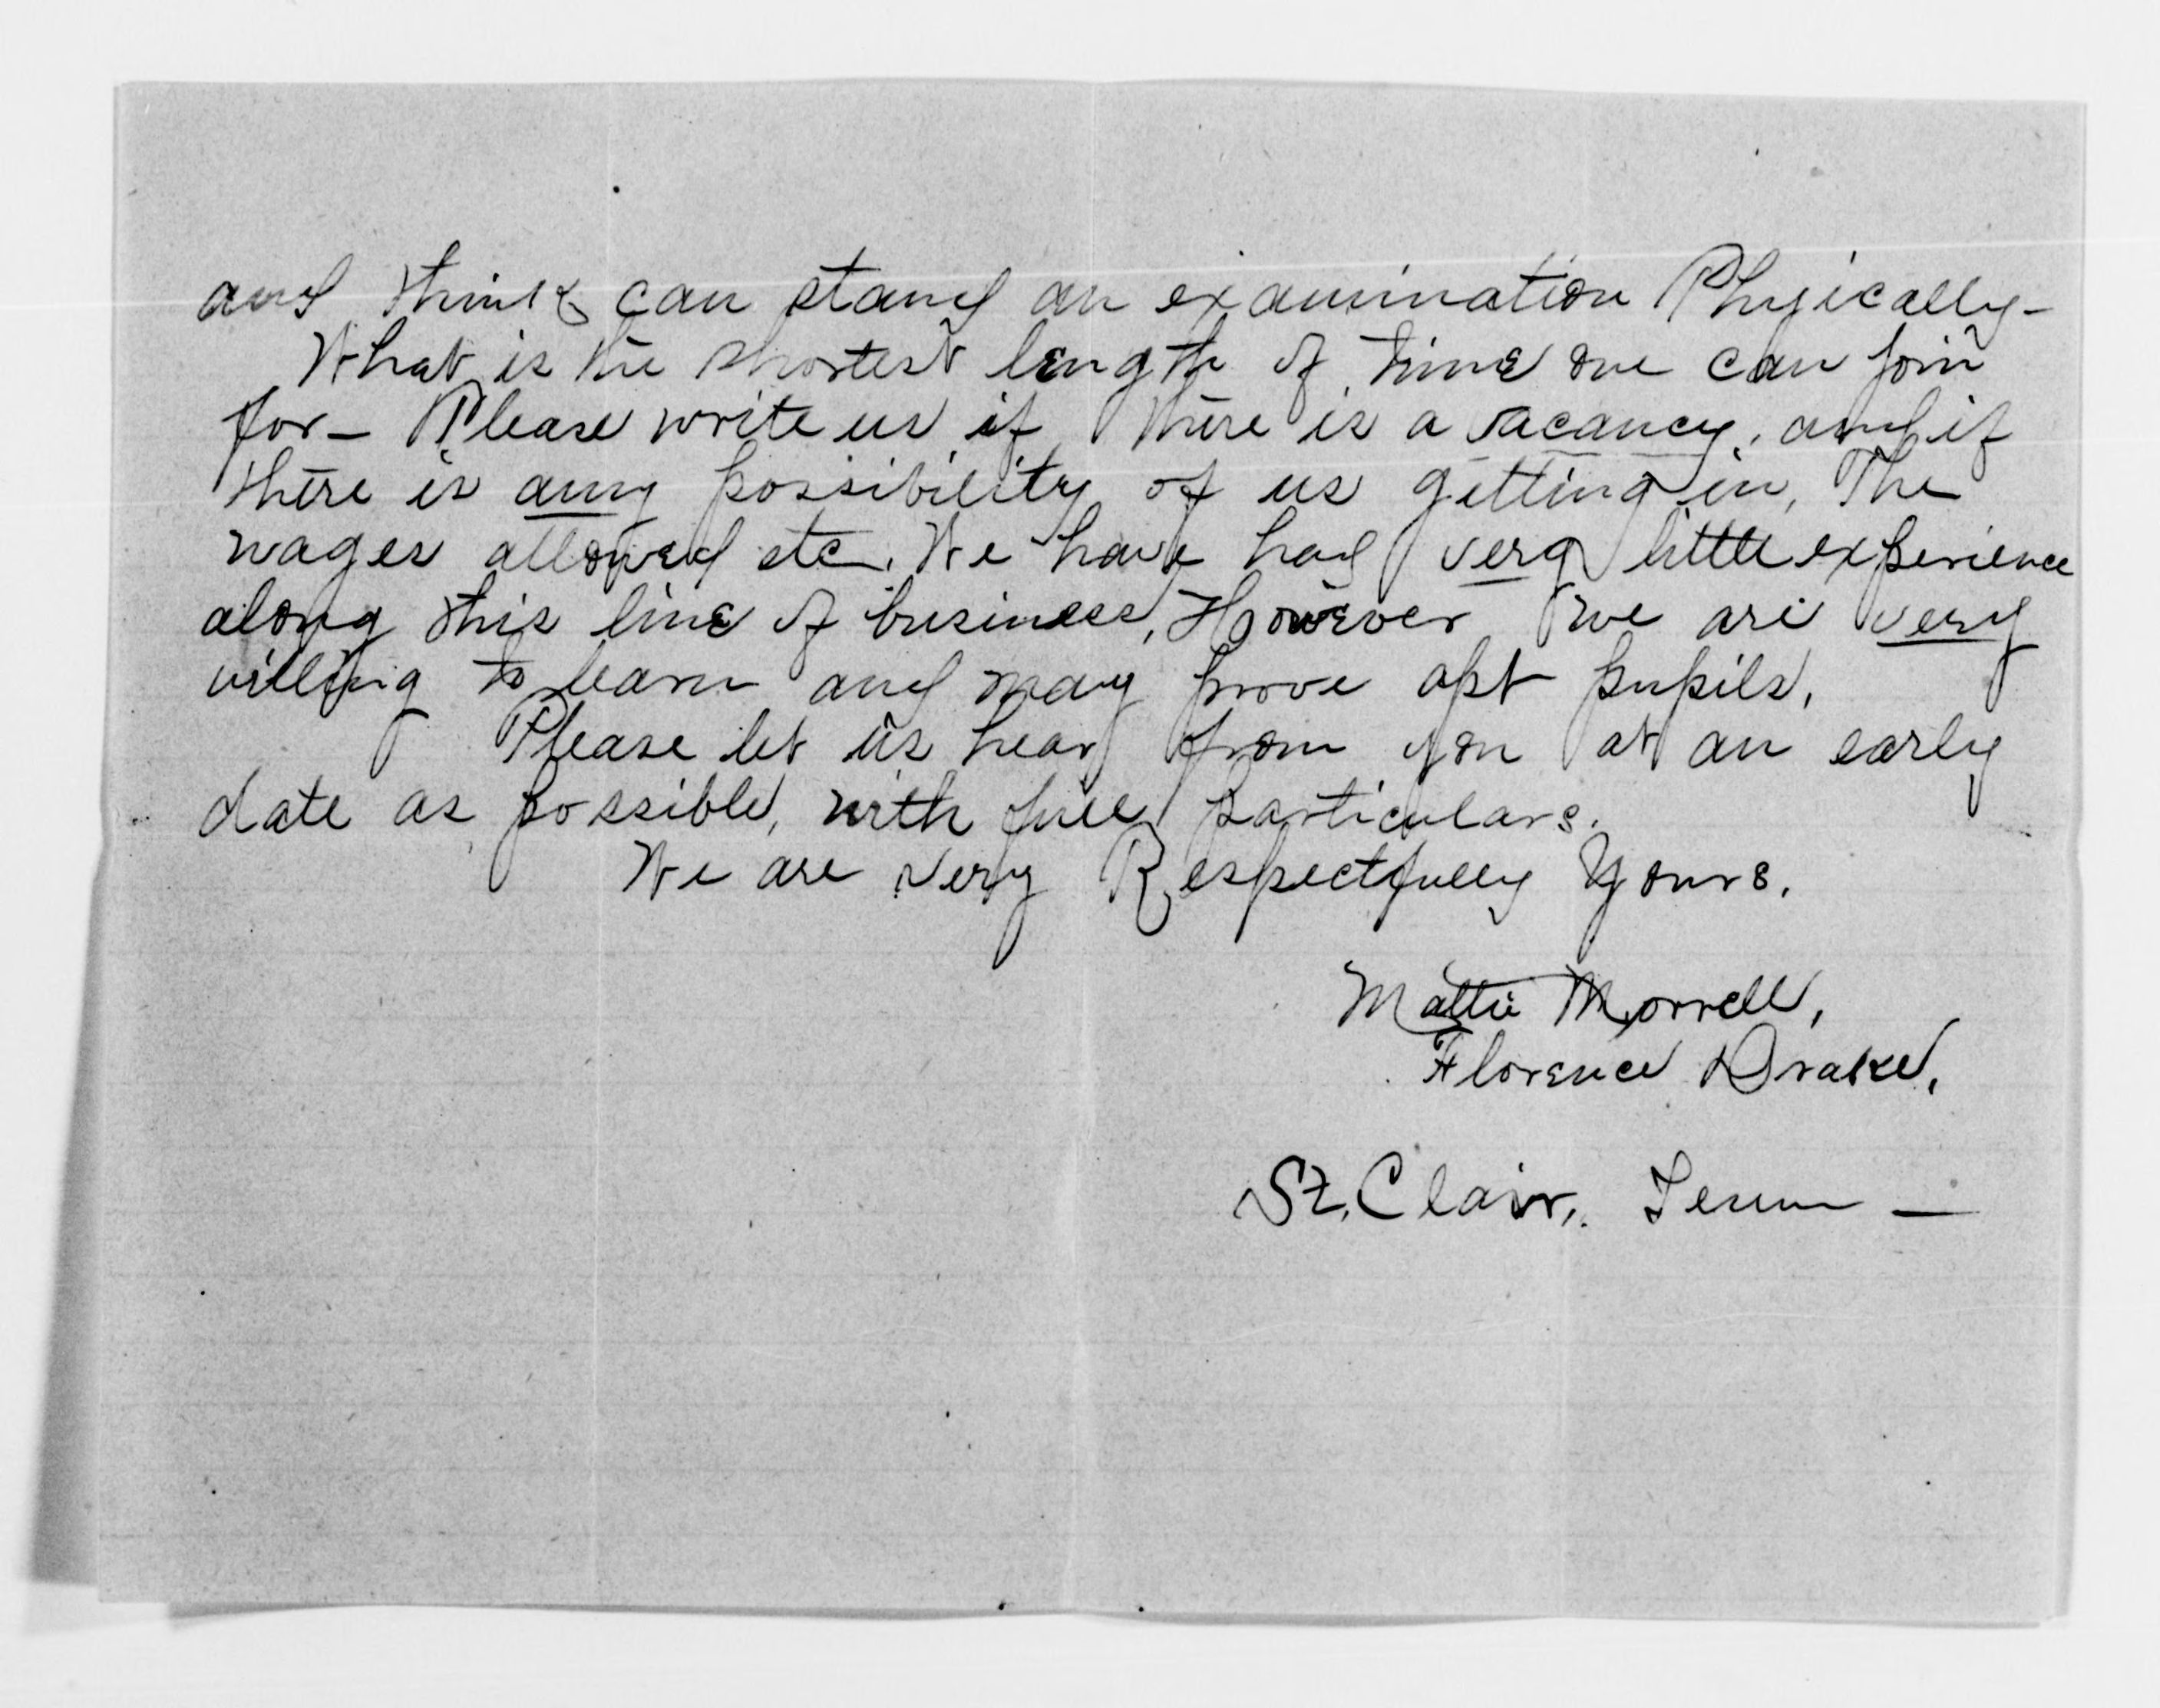 and think can stand an examination Phyically-
What is the shortest length of time one can join
for- Please write us if there is a vacancy, and if
there is any possibility of us getting in, The
wages allowed etc. We have had very little experience
along this line of business, However we are very
willing to learn and may prove apt pupils.
Please let us hear from you at an early
date as possible, with full particulars.
We are very Respectfully Yours.
Mattie Morrell,
Florence Drake,
St. Clair, Tenn —